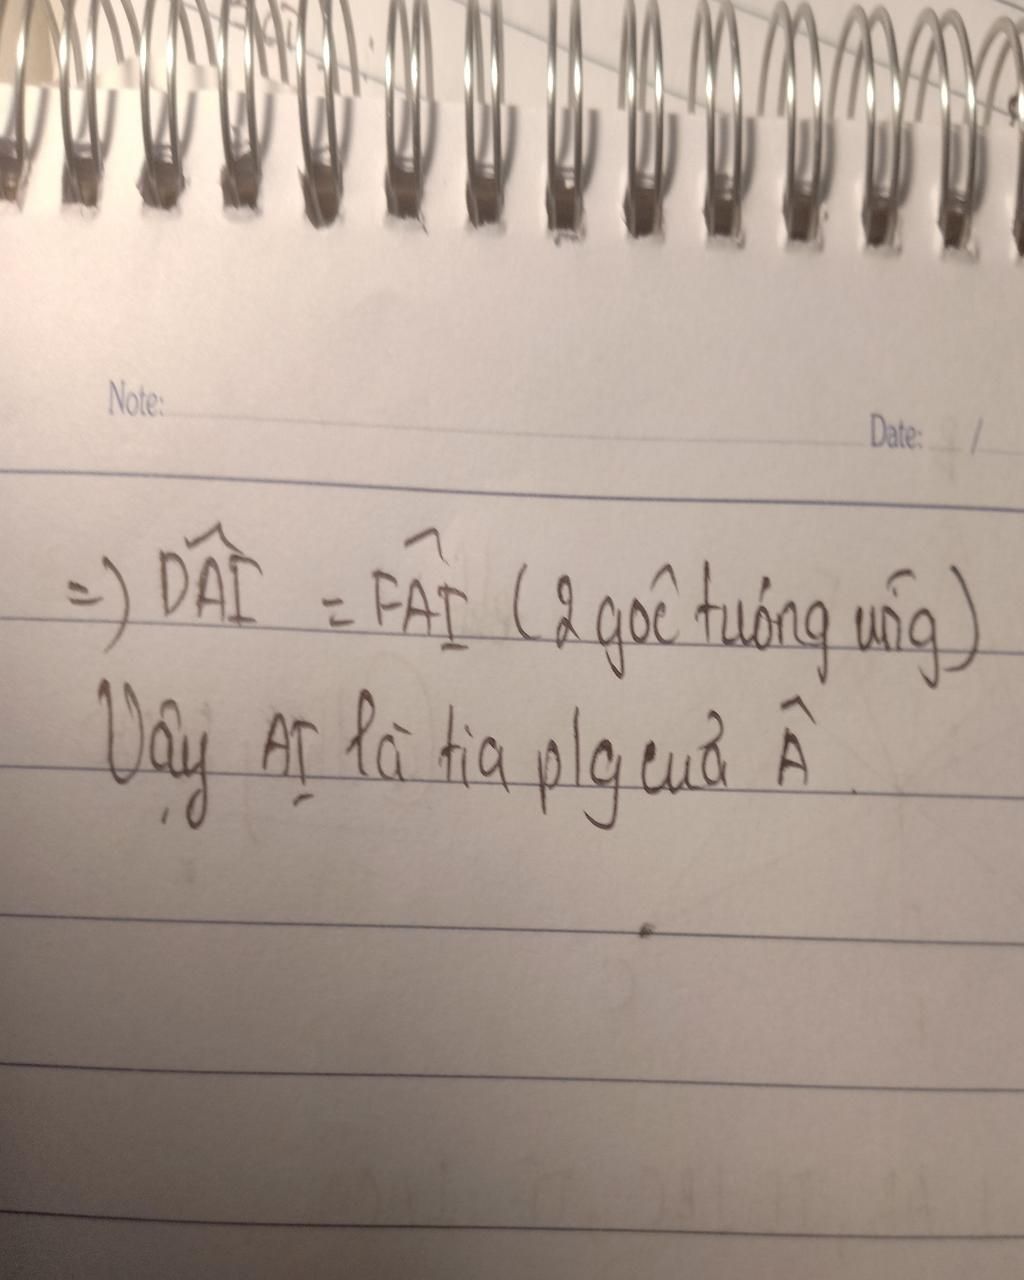 Note:
Date: /
=) DÂI = FÂI (2 góc tương ứng)
Vậy AI là tia plg của Â